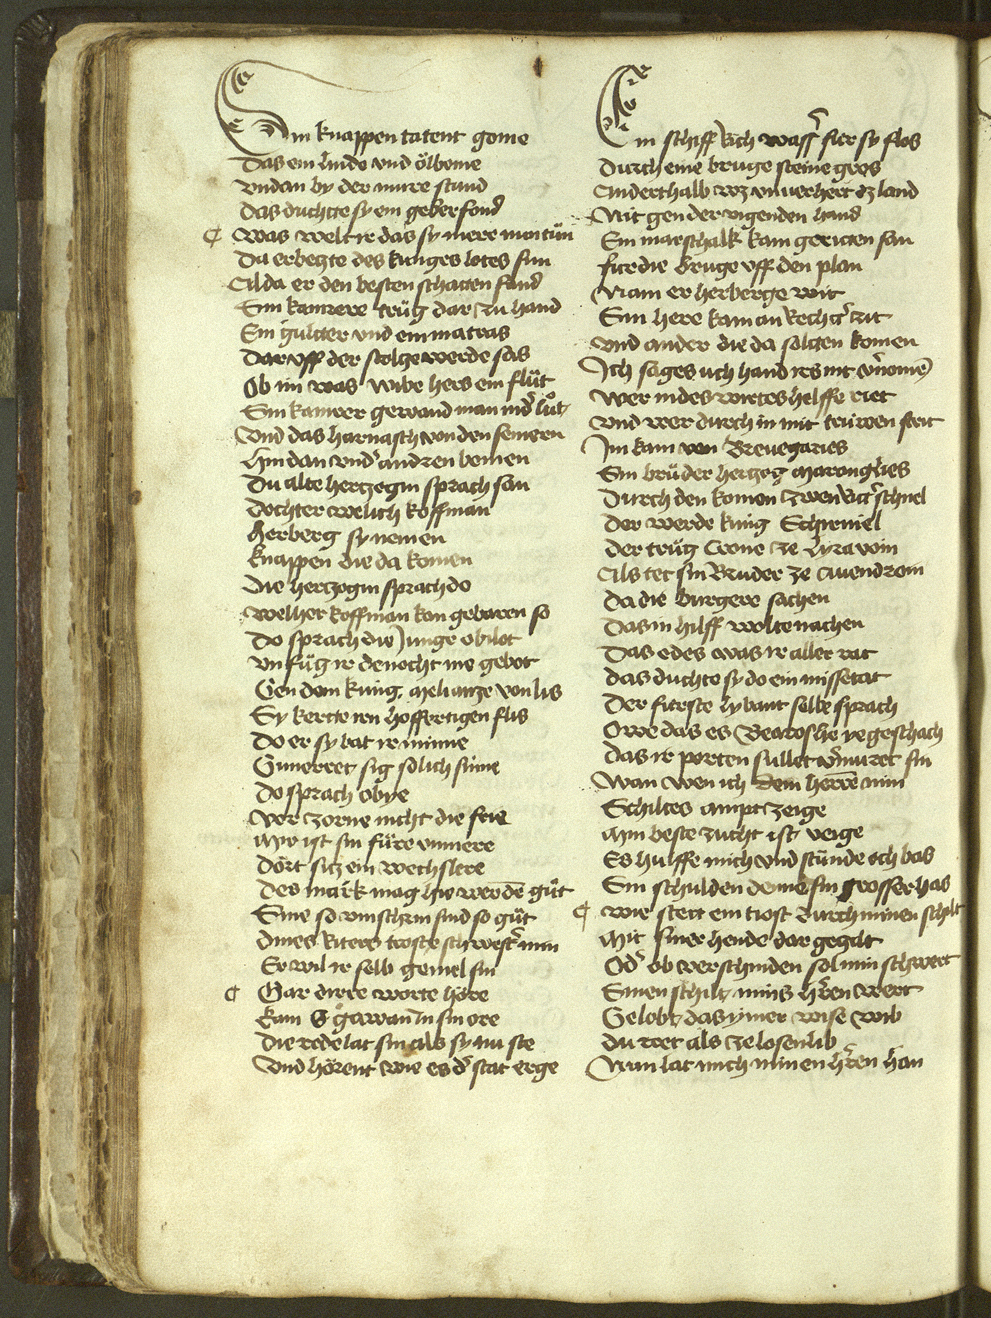 Sin knappen tatent gome
Das ein linde vnd ölbome
vndan by der mure stund
Das duchte sy ein geber fond
Was welt ir das sy mere nun tün
Da erbeizte des kunges lotes sun
Alda er den besten schatten fand
Sin kamrere trüg dar zu hand
Ein gulcter vnd ein matras
Dar vff der stolge werde sas
Ob im was wibe hers ein flüt
Sin kamrer gewand man mid lüt
Vnd das harnasch von den semern
Hin dan vnd andren bomen
Du alte hertzogin sprach san
Dochter welich koffman
Herberg sy nemen
Knappen die da komen
Die hertzogin sprach do
Welher koffman kan gebaren so
Do sprach die Junge obilot
Vn füg ir denocht me gebot
Gen dem kunig melianze von lis
Sy kerte iren hoffertigen flis
Do er sy bat ir minne
Gunerret sig solich sinne
Do sprach obye
Vor zorne nicht die frie
Mir ist sin füre vnmere
Dört sitz ein wechslere
Des mark mag hie werden güt
Sine so vmschrin sind so güt
Dines Ritters troste schwester min
Er wil ir selb gemel sin
Gar dirre worte höre
kam G gawan in sin ore
Die rede lat sin als sy nu ste
Vnd hörent wie es der stat erge
Ein schiff rich wasser fur sy flos
Durch eine bruge steine gros
Anderthalb wz vnuerhert dz land
Mit gen der vigenden hand
Ein marschalk kam geritten san
fur die bruge vff den plan
Nam er herberge wit
Sin here kam an rechter zit
Vnd ander die da solten komen
Ich sages uch hand irs nit vernomen
Wer in des wirtes helffe riet
Vnd wer durch in mit trüwen streit
Im kam von Breuegaries
Sin brüder hertzog marongleis
Durch den komen zwen Ritter schnel
Der werde kung Schirniel
Der trüg Crone ze lyravoin
Als tet sin Bruder ze auendroin
Da die burgere sachen
Das in hilff wolte nachen
Das edes was ir aller rat
Das duchte sy do ein missetat
Der furste lybaut selbe sprach
Owe das es Bearoshe ye geschach
Das ir porten sullet vermuret sin
Wan wen ich dem herren min
Schiltes ampt zeige
Min beste zucht ist veige
Es hulffe mich vnd stünde och bas
Sin schulden denne sin grosser has
Wie stett ein tiost durch minen schilt
Mit siner hende dar gezilt
Oder ob verschniden sol min schwert
Sinen schilt mins herren wert
Gelobt das ymer wise wib
Du tret als ze losen lib
Nun lat mich minen herren han